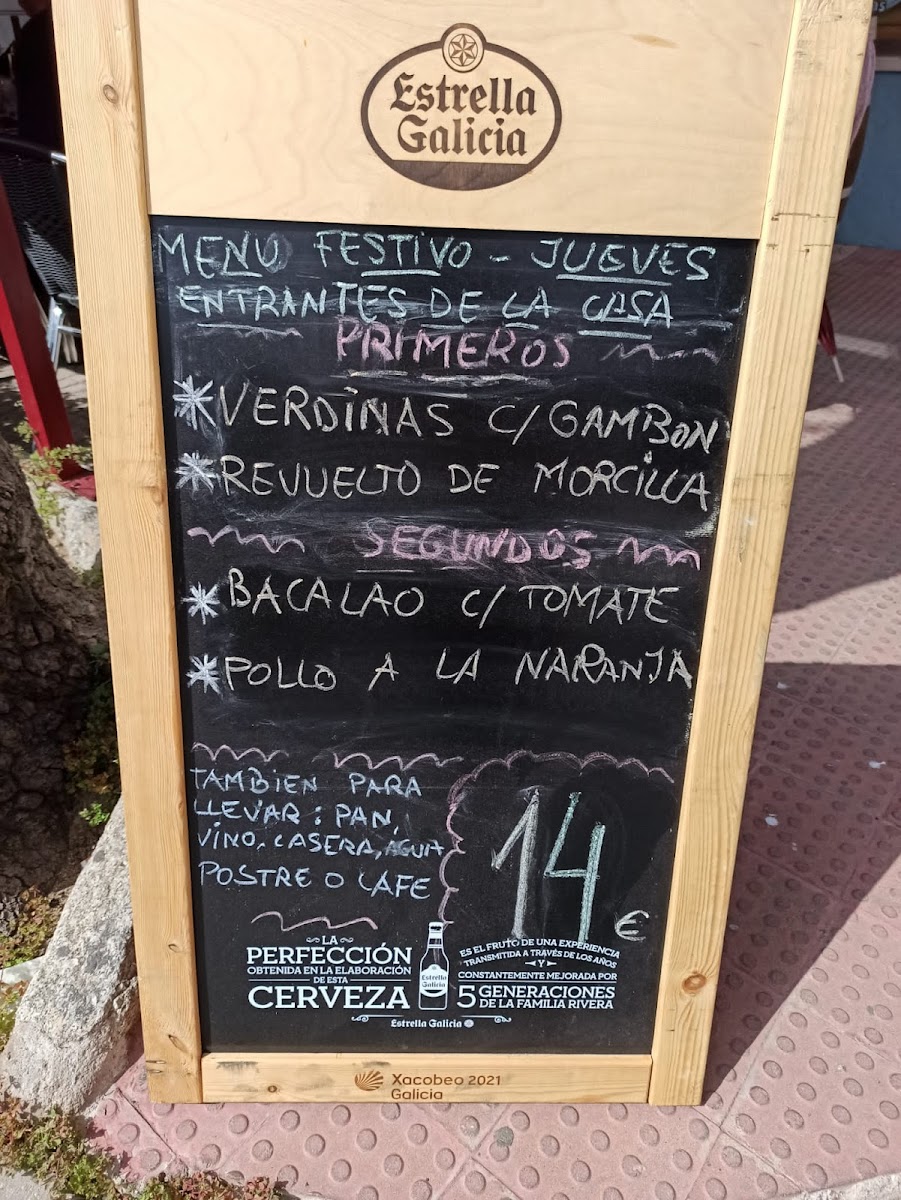 Estrella
Galicia
MENU FESTIVO - JUEVES
ENTRANTES DE LA CASA
PRIMEROS
VERDINAS C/ GAMBON
REVUELTO DE MORCILLA
SEGUNDOS
BACALAO C/ TOMATE
POLLO A LA NARANJA
TAMBIEN PARA
LLEVAR: PAN,
VINO, CASERA, AGUA
POSTRE O CAFE
14 €
LA
PERFECCIÓN
OBTENIDA EN LA ELABORACIÓN
DE ESTA
CERVEZA
Estrella
Galicia
ES EL FRUTO DE UNA EXPERIENCIA
TRANSMITIDA A TRAVÉS DE LOS AÑOS
Y
CONSTANTEMENTE MEJORADA POR
5 GENERACIONES
DE LA FAMILIA RIVERA
Estrella Galicia
Xacobeo 2021
Galicia